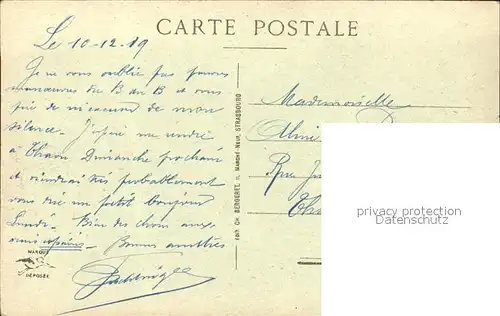 CARTE POSTALE
Le 10-12-19
Je ne vous oublie pas pauvres
manœuvres du B du B et vous
prie de m'excuser de mon
silence - J'espère me rendre
à Thann Dimanche prochain
et viendrai très probablement
vous dire un petit bonjour
Lundi - Bien des choses aux
amis copains - Bonnes amitiés
Mademoiselle
Aline
Rue
Tha
Edit. Ch. BERGERET, 11, Marché-Neuf, STRASBOURG
MARQUE
DÉPOSÉE
privacy protection
Datenschutz